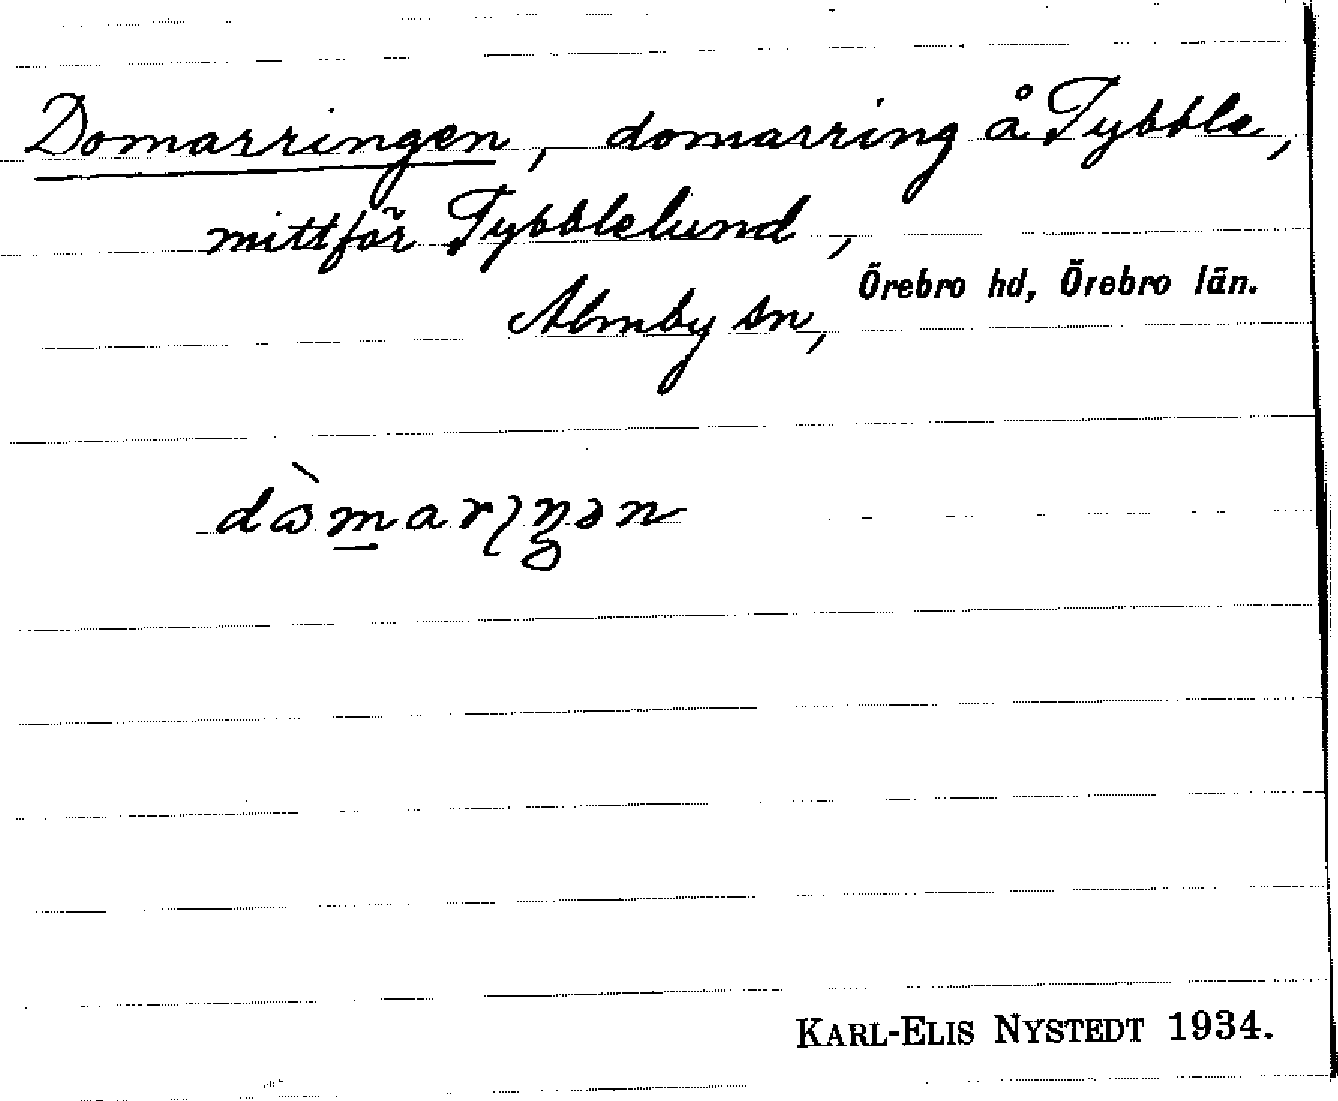 Domarringen, domarring å Tybble,
mittför Tybblelund,
Almby sn, Örebro hd, Örebro län.
KARL-ELIS NYSTEDT 1934.